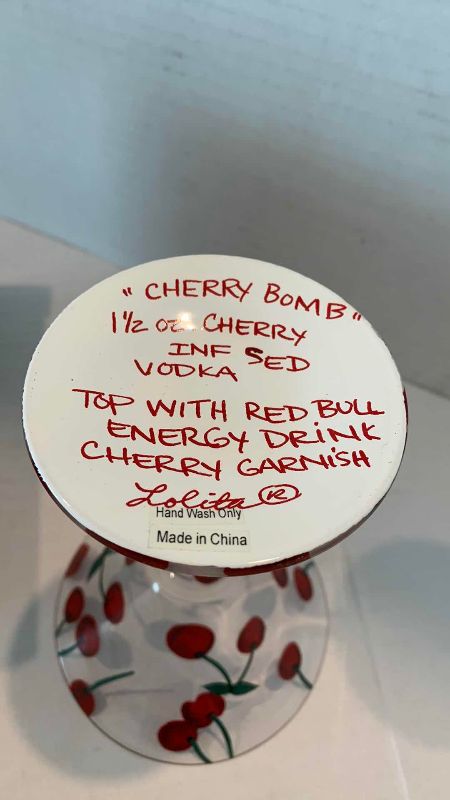 "CHERRY BOMB"
1 1/2 oz. CHERRY
INF SED
VODKA
TOP WITH RED BULL
ENERGY DRINK
CHERRY GARNISH
Lolita ®
Hand Wash Only
Made in China